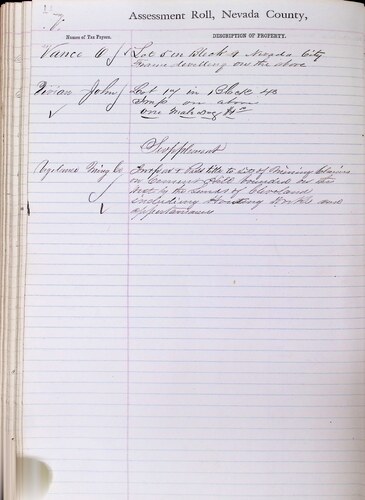 V.
Assessment Roll, Nevada County,
Names of Tax Payers.
DESCRIPTION OF PROPERTY.
Vance W J Lot 5 in Block 4 Nevada City
Frame dwelling on the above
Vivian John Lot 17 in Block 43
Imps on above
one male Dog
Supplement
Vigilance Ming Co Imps on & Poss title to set of Mining Claims
on Cement Hill bounded on the
west by the lands of Cleveland
including Hoisting Works and
appurtenances